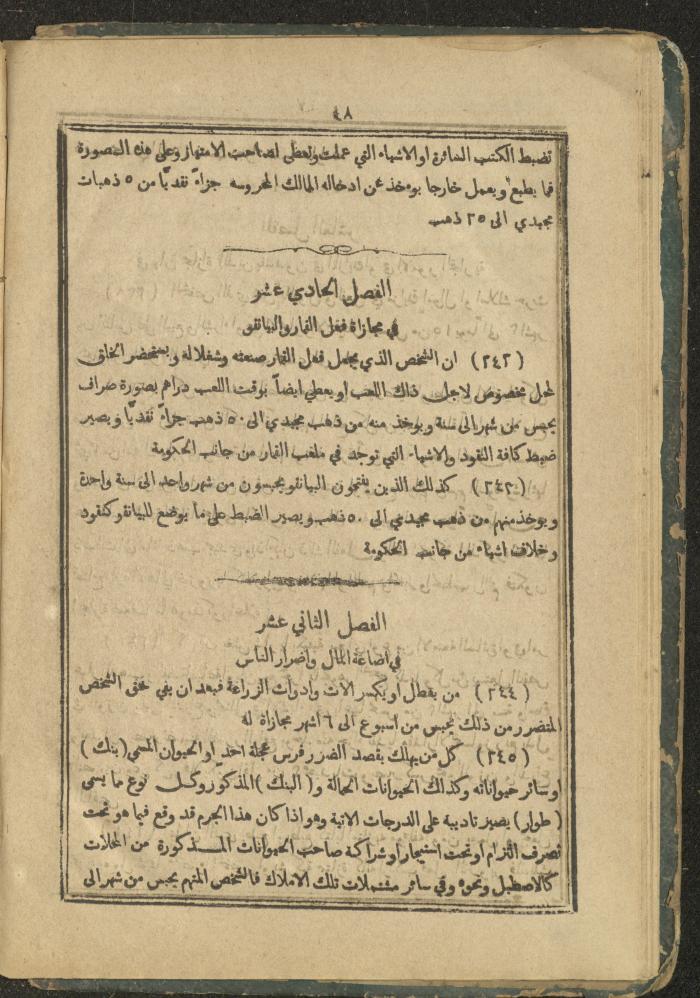 ٤٨
تضبط الكتب الدائرة او الاشياء التي عملت وتعطى لصاحب الامتياز وعلى هذه الصورة
فما يطبع ويعمل خارجا يوءخذ عن ادخاله المالك المحروسه جزاءً نقديًا من ٥ ذهبات
مجيدي الى ٢٥ ذهب
الفصل الحادي عشر
في مجازاة فعل القمار والبيانقو
(٢٤٢) ان الشخص الذي يجعل فعل القمار صنعته وشغلا له ويستحضر الخلق
لمحل مخصوص لاجل ذاك اللعب او يعطي ايضاً بوقت اللعب دراهم بصورة صراف
يحبس من شهر الى سنة ويوخذ منه من ذهب مجيدي الى ٥٠ ذهب جزاءً نقديًا ويصير
ضبط كافة النقود والاشياء التي توجد في ملعب القمار من جانب الحكومة
(٢٤٣) كذلك الذين يفتحون البيانقو يحبسون من شهر واحد الى سنة واحدة
ويوخذ منهم من ذهب مجيدي الى ٥٠ ذهب ويصير الضبط على ما يوضع للبيانقو كنقود
وخلاف اشياء من جانب الحكومة
الفصل الثاني عشر
في اضاعة المال واضرار الناس
(٢٤٤) من يعطل او يكسر الات وادوات الزراعة فبعد ان يفي حق الشخص
المتضرر من ذلك يحبس من اسبوع الى ٦ اشهر مجازاة له
(٢٤٥) كل من يهلك بقصد الضرر فرس عجلة احد او الحيوان المسمى (بنك)
او سائر حيواناته وكذلك الحيوانات الحمالة و(البنك) المذكور وكل نوع ما يسمى
(طوار) يصير تاديبه على الدرجات الاتية وهو اذا كان هذا الجرم قد وقع فيما هو تحت
تصرف التزام او تحت استيجار او شراكة صاحب الحيوانات المذكورة من المحلات
كالاصطبل ونحوه وفي سائر مشتملات تلك الاملاك فالشخص المتهم يحبس من شهر الى